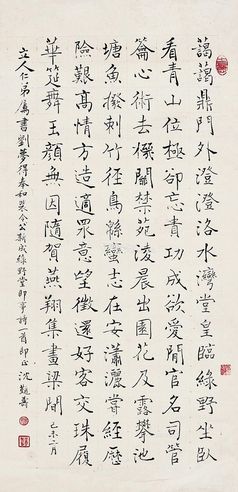 藹藹鼎門外澄澄洛水灣堂皇臨綠野坐臥
看青山位極卻忘貴功成欲愛閒官名司管
籥心術去機關禁苑淩晨出園花及露攀池
塘魚撥剌竹徑鳥緜蠻志在安瀟灑嘗經歷
險艱高情方造適衆意望徵還好客交珠履
華筵舞玉顏無因隨賀燕翔集畫梁間 己未二月
立人仁弟屬書劉夢得奉和裴令公新成綠野堂即事詩一首即正 沈覲壽